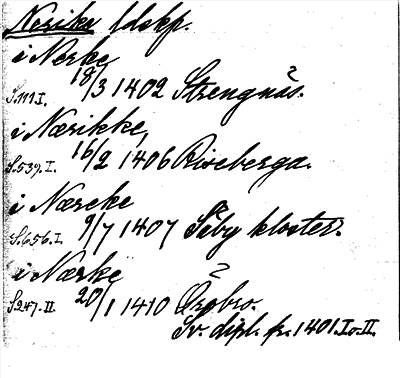 Nerike ldskp.
i Nerke
S.111.I. 18/3 1402 Strengnäs.
i Nærikke,
S.539.I. 16/2 1406 Riseberga.
i Næreke
S.656.I. 9/7 1407 Säby kloster.
i Nærke
S247.II. 20/1 1410 Ørebro.
Sv. dipl. fr. 1401.I o. II.